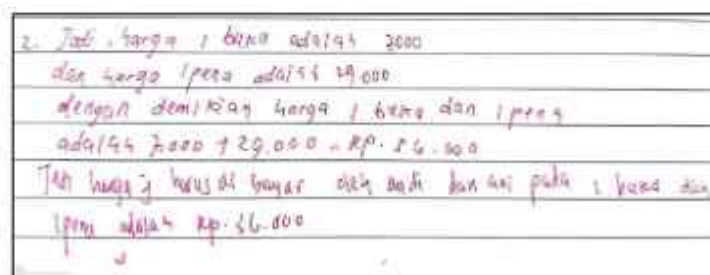 2. Jadi harga 1 buku adalah 7000
dan harga 1 pena adalah 29.000
dengan demikian harga 1 buku dan 1 pena
adalah 7.000 + 29.000 = Rp. 36.000
Jadi harga yg harus di bayar oleh budi dan ani pada 1 buku dan
1 pena adalah Rp. 36.000